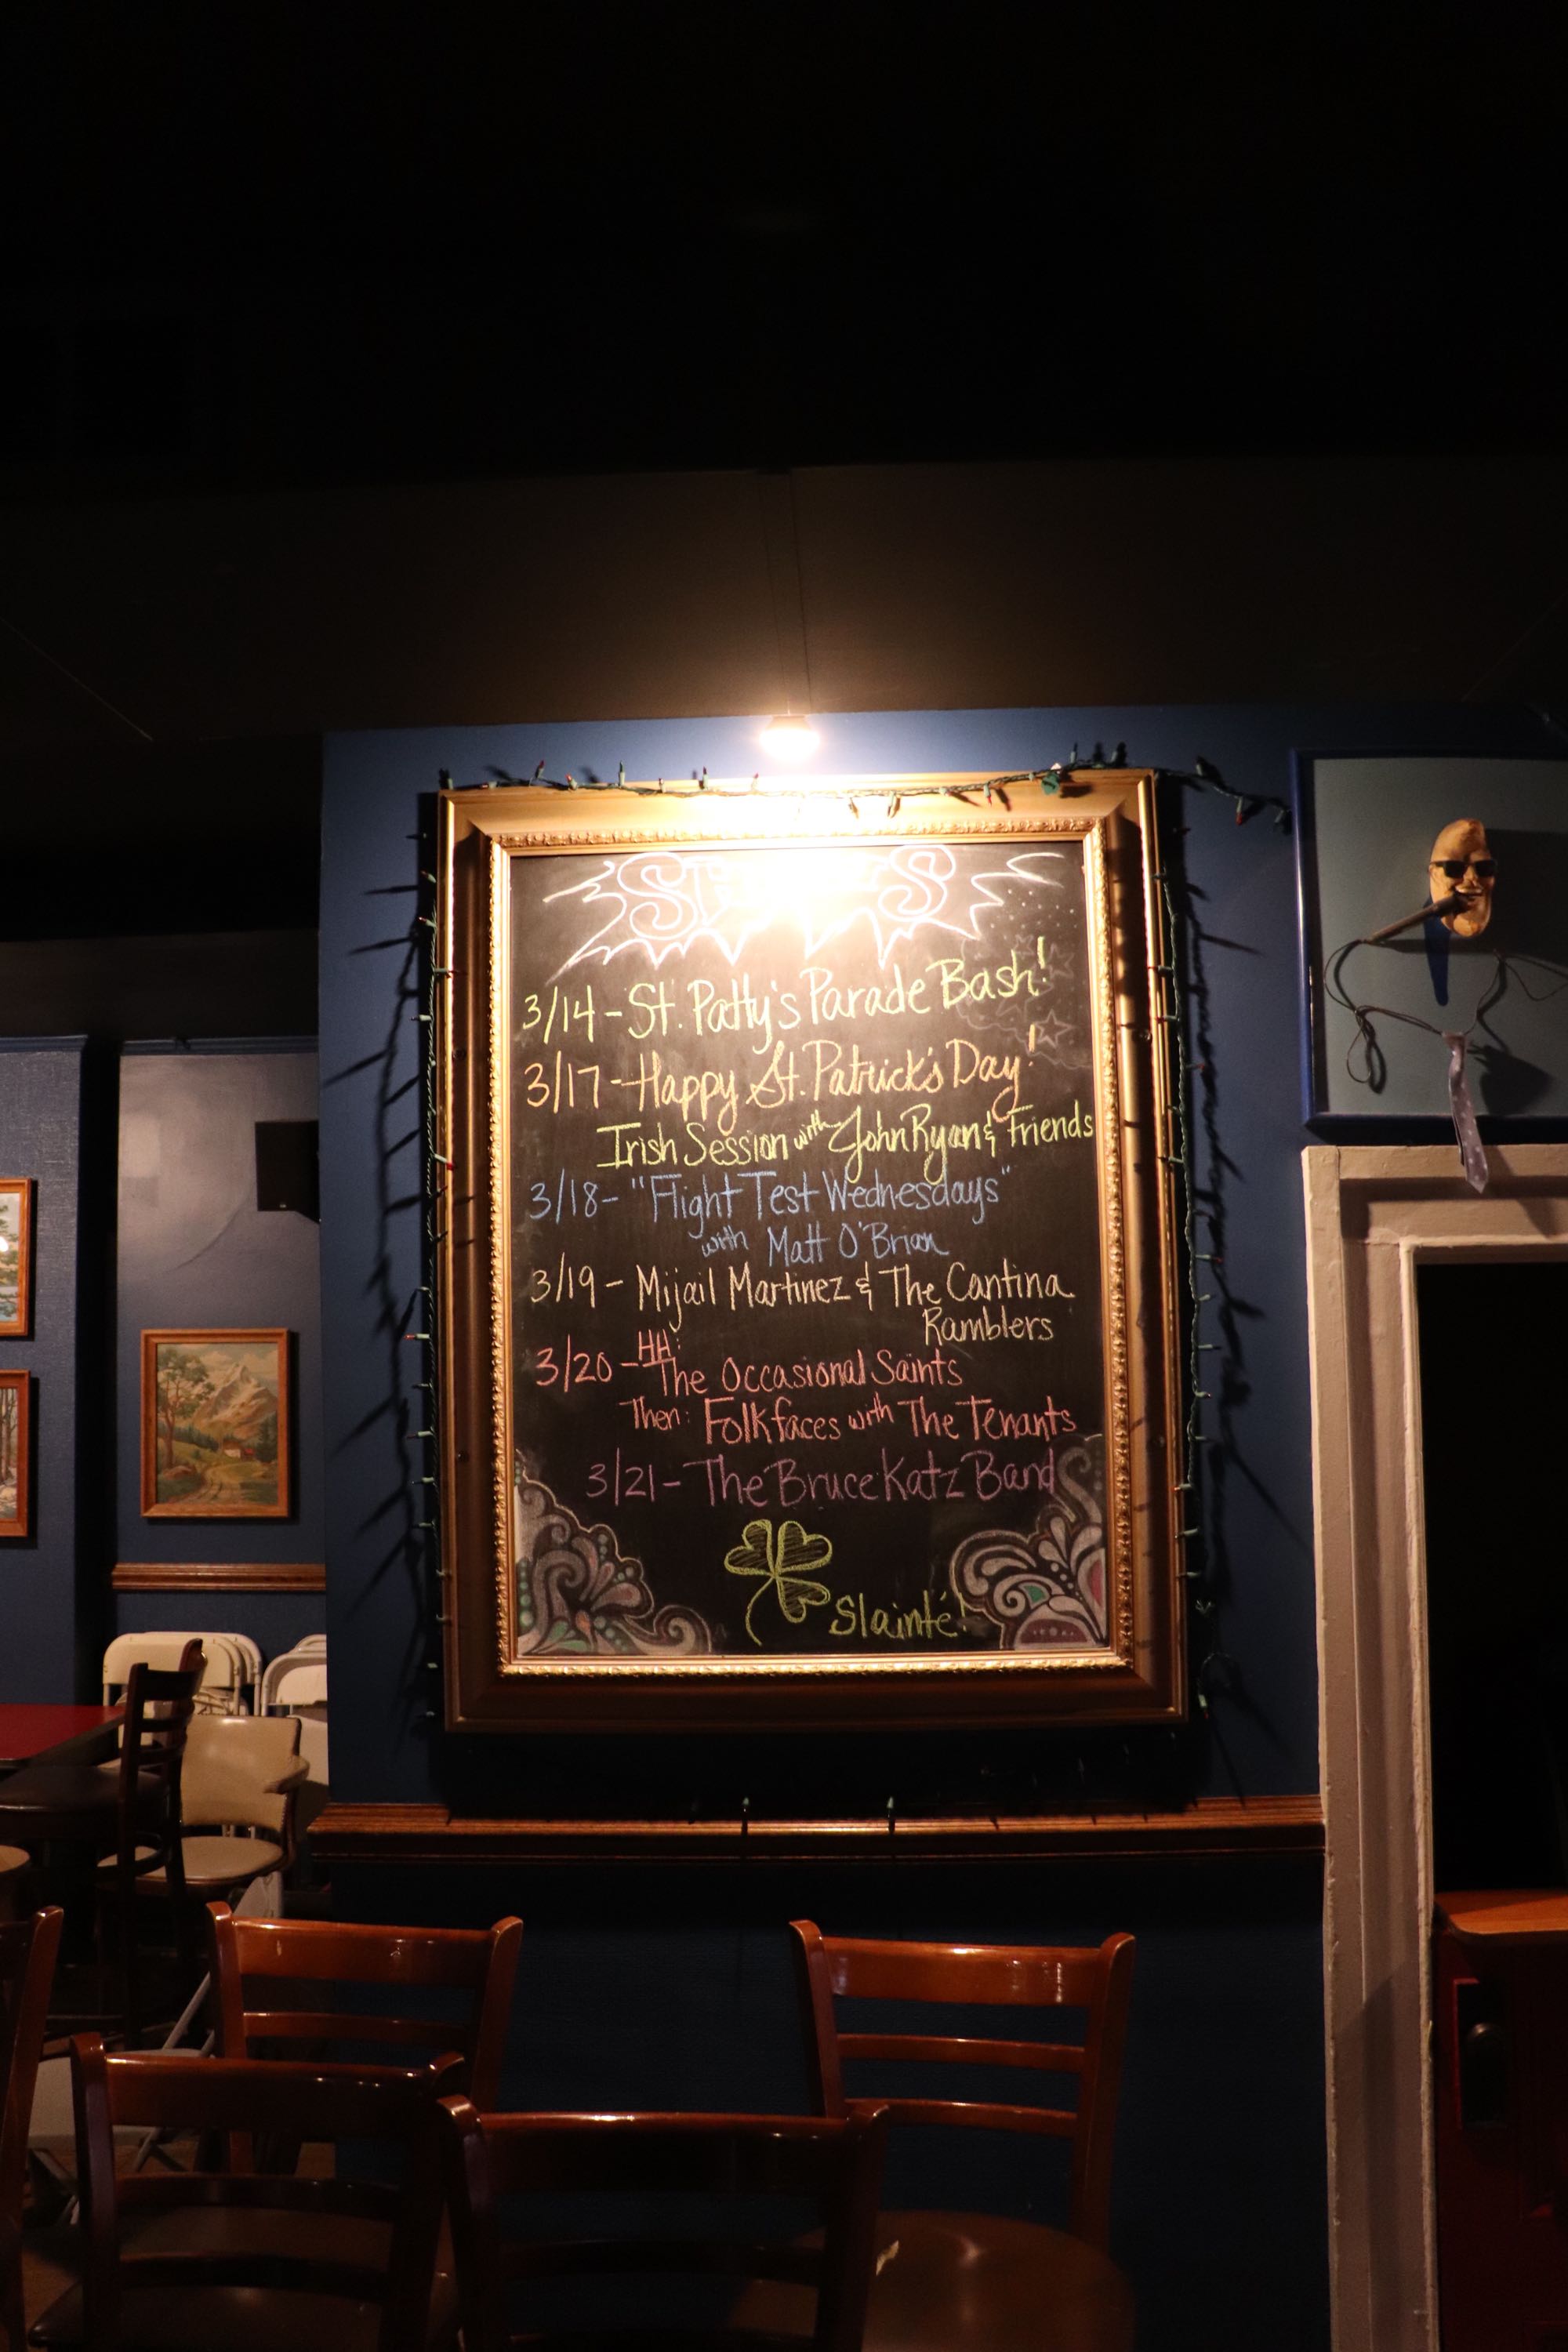 3/14 - St. Patty's Parade Bash!
3/17 - Happy St. Patrick's Day!
Irish Session with John Ryan & Friends
3/18 - "Flight Test Wednesdays"
with Matt O'Brian
3/19 - Mijail Martinez & The Cantina
Ramblers
3/20 - HH: The Occasional Saints
Then: Folkfaces with The Tenants
3/21 - The Bruce Katz Band
Slainté!